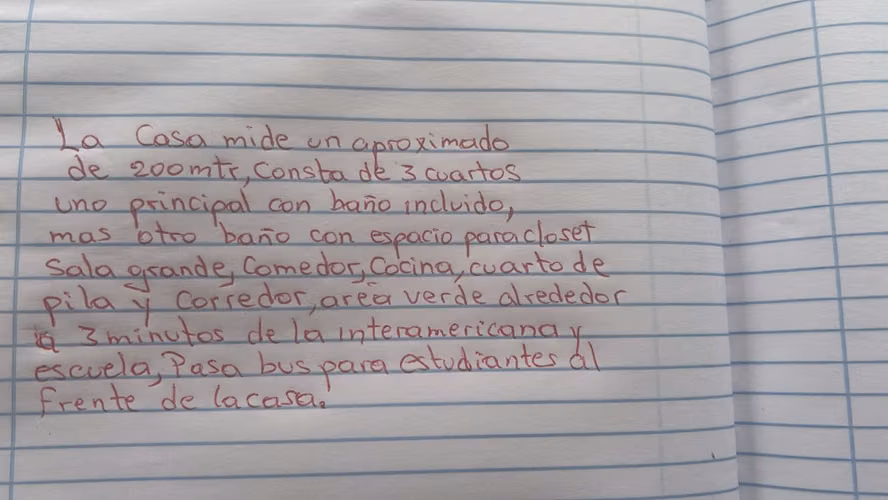 La Casa mide un aproximado
de 200mtr, Consta de 3 cuartos
uno principal con baño incluido,
mas otro baño con espacio para closet
Sala grande, Comedor, Cocina, cuarto de
pila y Corredor, area verde alrededor
a 3 minutos de la interamericana y
escuela, Pasa bus para estudiantes al
frente de la casa.